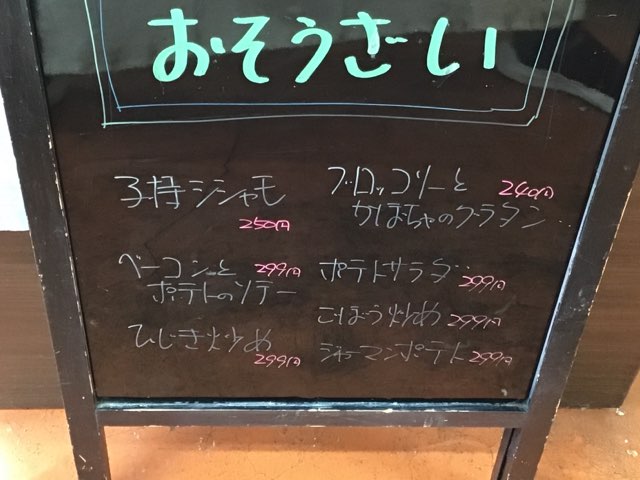 おそうざい
子持シシャモ
250円
ベーコンと 299円
ポテトのソテー
ひじき炒め
299円
ブロッコリーと 240円
かぼちゃのグラタン
ポテトサラダ 299円
ごぼう炒め 299円
ジャーマンポテト 299円